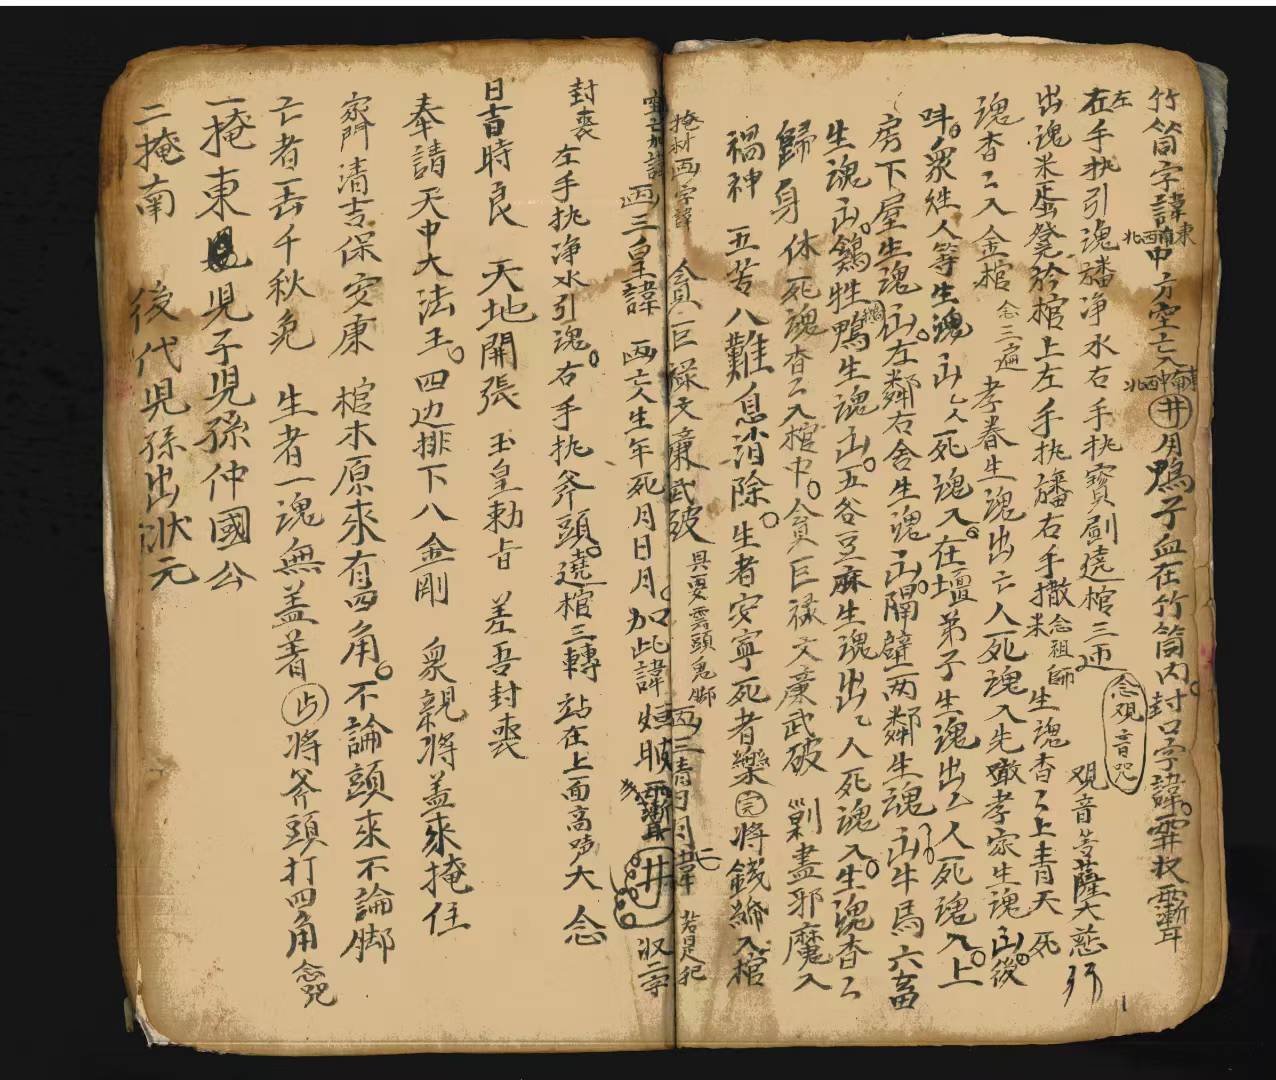 竹筒字諱東南西北中方空亡入東輪中西北井用鴨子血在竹筒內封口字諱
左手执引魂旛净水右手执寳劍遶棺三迊 念观音咒 观音菩薩大慈
出魂米盞凳於棺上左手执旛右手撒米念祖師 生魂杳〻上青天死
魂杳〻入金棺 念三遍 孝眷生魂出亡人死魂入先噉孝家生魂出後
咩衆姓人等生魂出亡人死魂入在壇弟子生魂出亡人死魂入上
房下屋生魂出左鄰右舍生魂出隔壁两鄰生魂出牛馬六畜
生魂出鷄牲鴨鵝生魂出五谷豆麻生魂出亡人死魂入生魂杳〻
歸身体死魂杳〻入棺中貪巨禄文廉武破 剿盡邪魔入
禍神 五苦八難息消除生者安寧死者樂完將錢綈入棺
掩材画字諱 貪巨禄文廉武破 具要雲頭鬼脚画三清日月諱 若是犯
画三皇諱 画亡人生年死月日月加此諱 井 収字
封喪 左手执净水引魂右手执斧頭遶棺三轉 站在上面高声大念
日吉時良 天地開張 玉皇勅旨 差吾封喪
奉請天中大法王四边排下八金剛 衆親將盖來掩住
家門清吉保安康 棺木原來有四角不論頭來不論脚
亡者一去千秋兔 生者一魂無盖著 將斧頭打四角念咒
一掩東 兒子兒孫仲國公
二掩南 後代兒孫出狀元